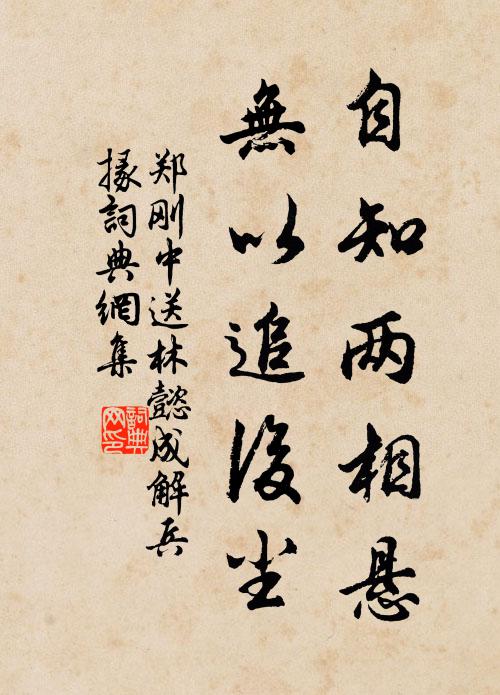 自知两相悬
無以追後尘
郑刚中送林懿成解兵
掾詞典網集
詞典
网印